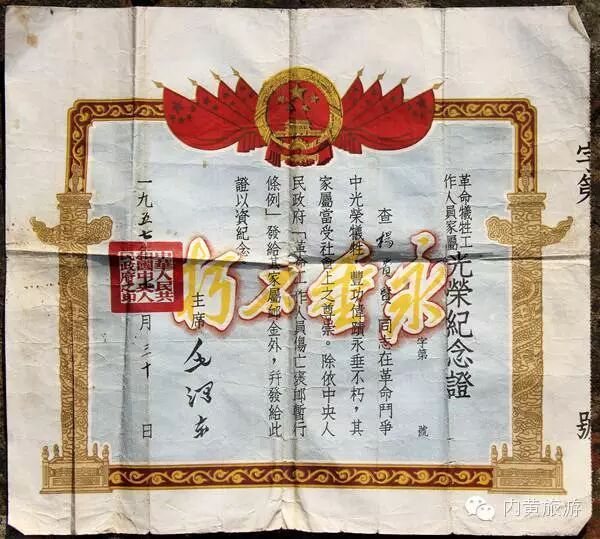 字第 號
革命犧牲工
作人員家屬
光榮紀念證
字第 號
查楊 同志在革命鬥爭
中光榮犧牲，豐功偉蹟永垂不朽，其
家屬當受社會上之尊崇。除依中央人
民政府「革命工作人員傷亡褒卹暫行
條例」發給其家屬卹金外，幷發給此
證以資紀念
永垂不朽
主席 毛澤东
一九五七年 月三十日
中華人民共
和國中央人
民政府之印
内黄旅游